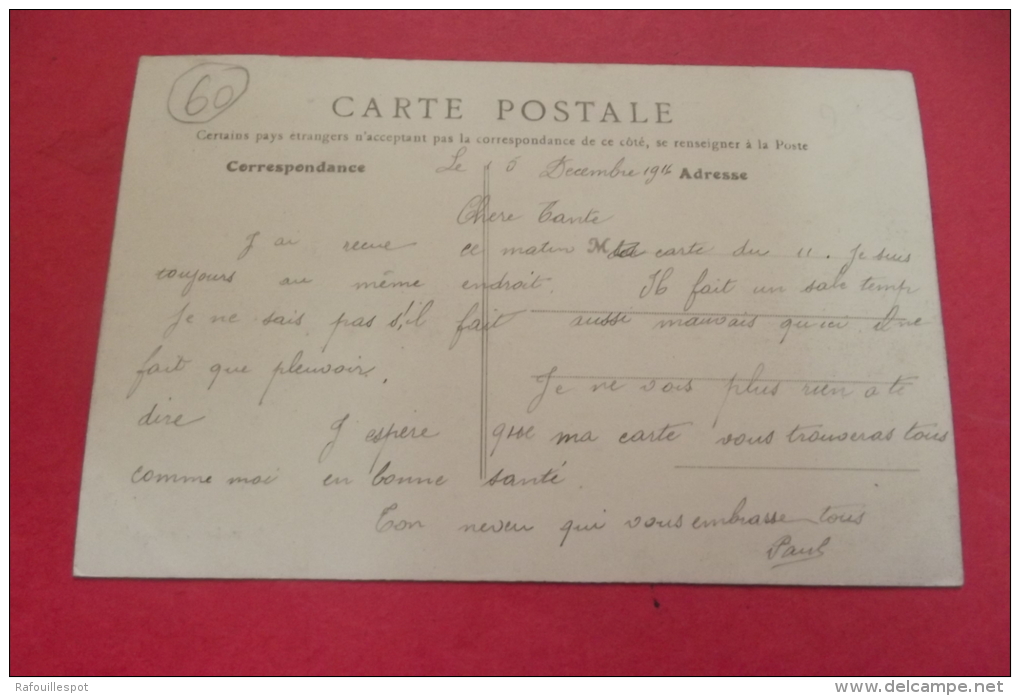 60
CARTE POSTALE
Certains pays étrangers n'acceptant pas la correspondance de ce côté, se renseigner à la Poste
Correspondance Adresse
Le Decembre
Chere Tante
J ai recue ce matin ta carte du 11. Je suis
toujours au même endroit. Il fait un sale temp
Je ne sais pas s'il fait aussi mauvais qu'ici Il ne
fait que pleuvoir.
Je ne vois plus rien a te
dire J espère que ma carte vous trouveras tous
comme moi en bonne santé.
Ton neveu qui vous embrasse tous
Paul
Rafouillespot
www.delcampe.net